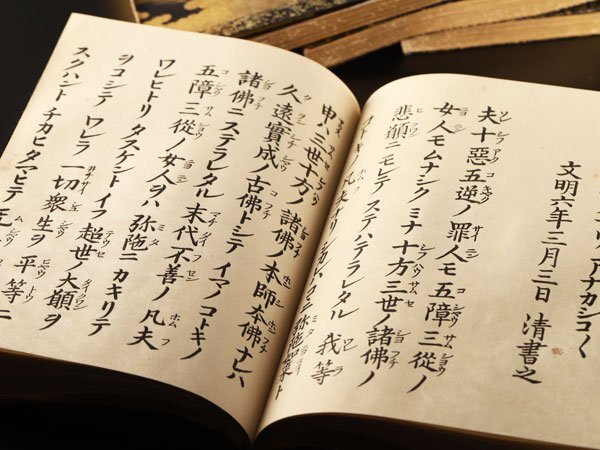 アナカシコ〱
文明六年三月三日 清書之
夫十惡五逆ノ罪人モ五障三從ノ
女人モムナシクミナ十方三世ノ諸佛ノ
悲願ニモレテステハテラレタル我等
コトキノ凡夫ナリシカレハ弥陀如來ト
申ハ三世十方ノ諸佛ノ本師本佛ナレハ
久遠實成ノ古佛トシテイマノコトキノ
諸佛ニステラレタル末代不善ノ凡夫
五障三從ノ女人ヲハ弥陀ニカキリテ
ワレヒトリタスケントイフ超世ノ大願ヲ
ヲコシテワレラ一切衆生ヲ平等ニ
スクハントチカヒタマヒテ无